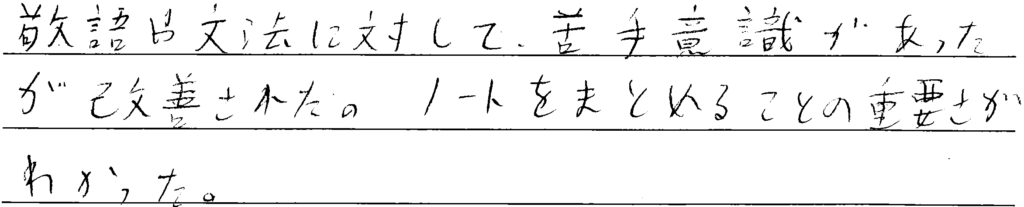 敬語や文法に対して、苦手意識があった
が改善された。ノートをまとめることの重要さが
わかった。